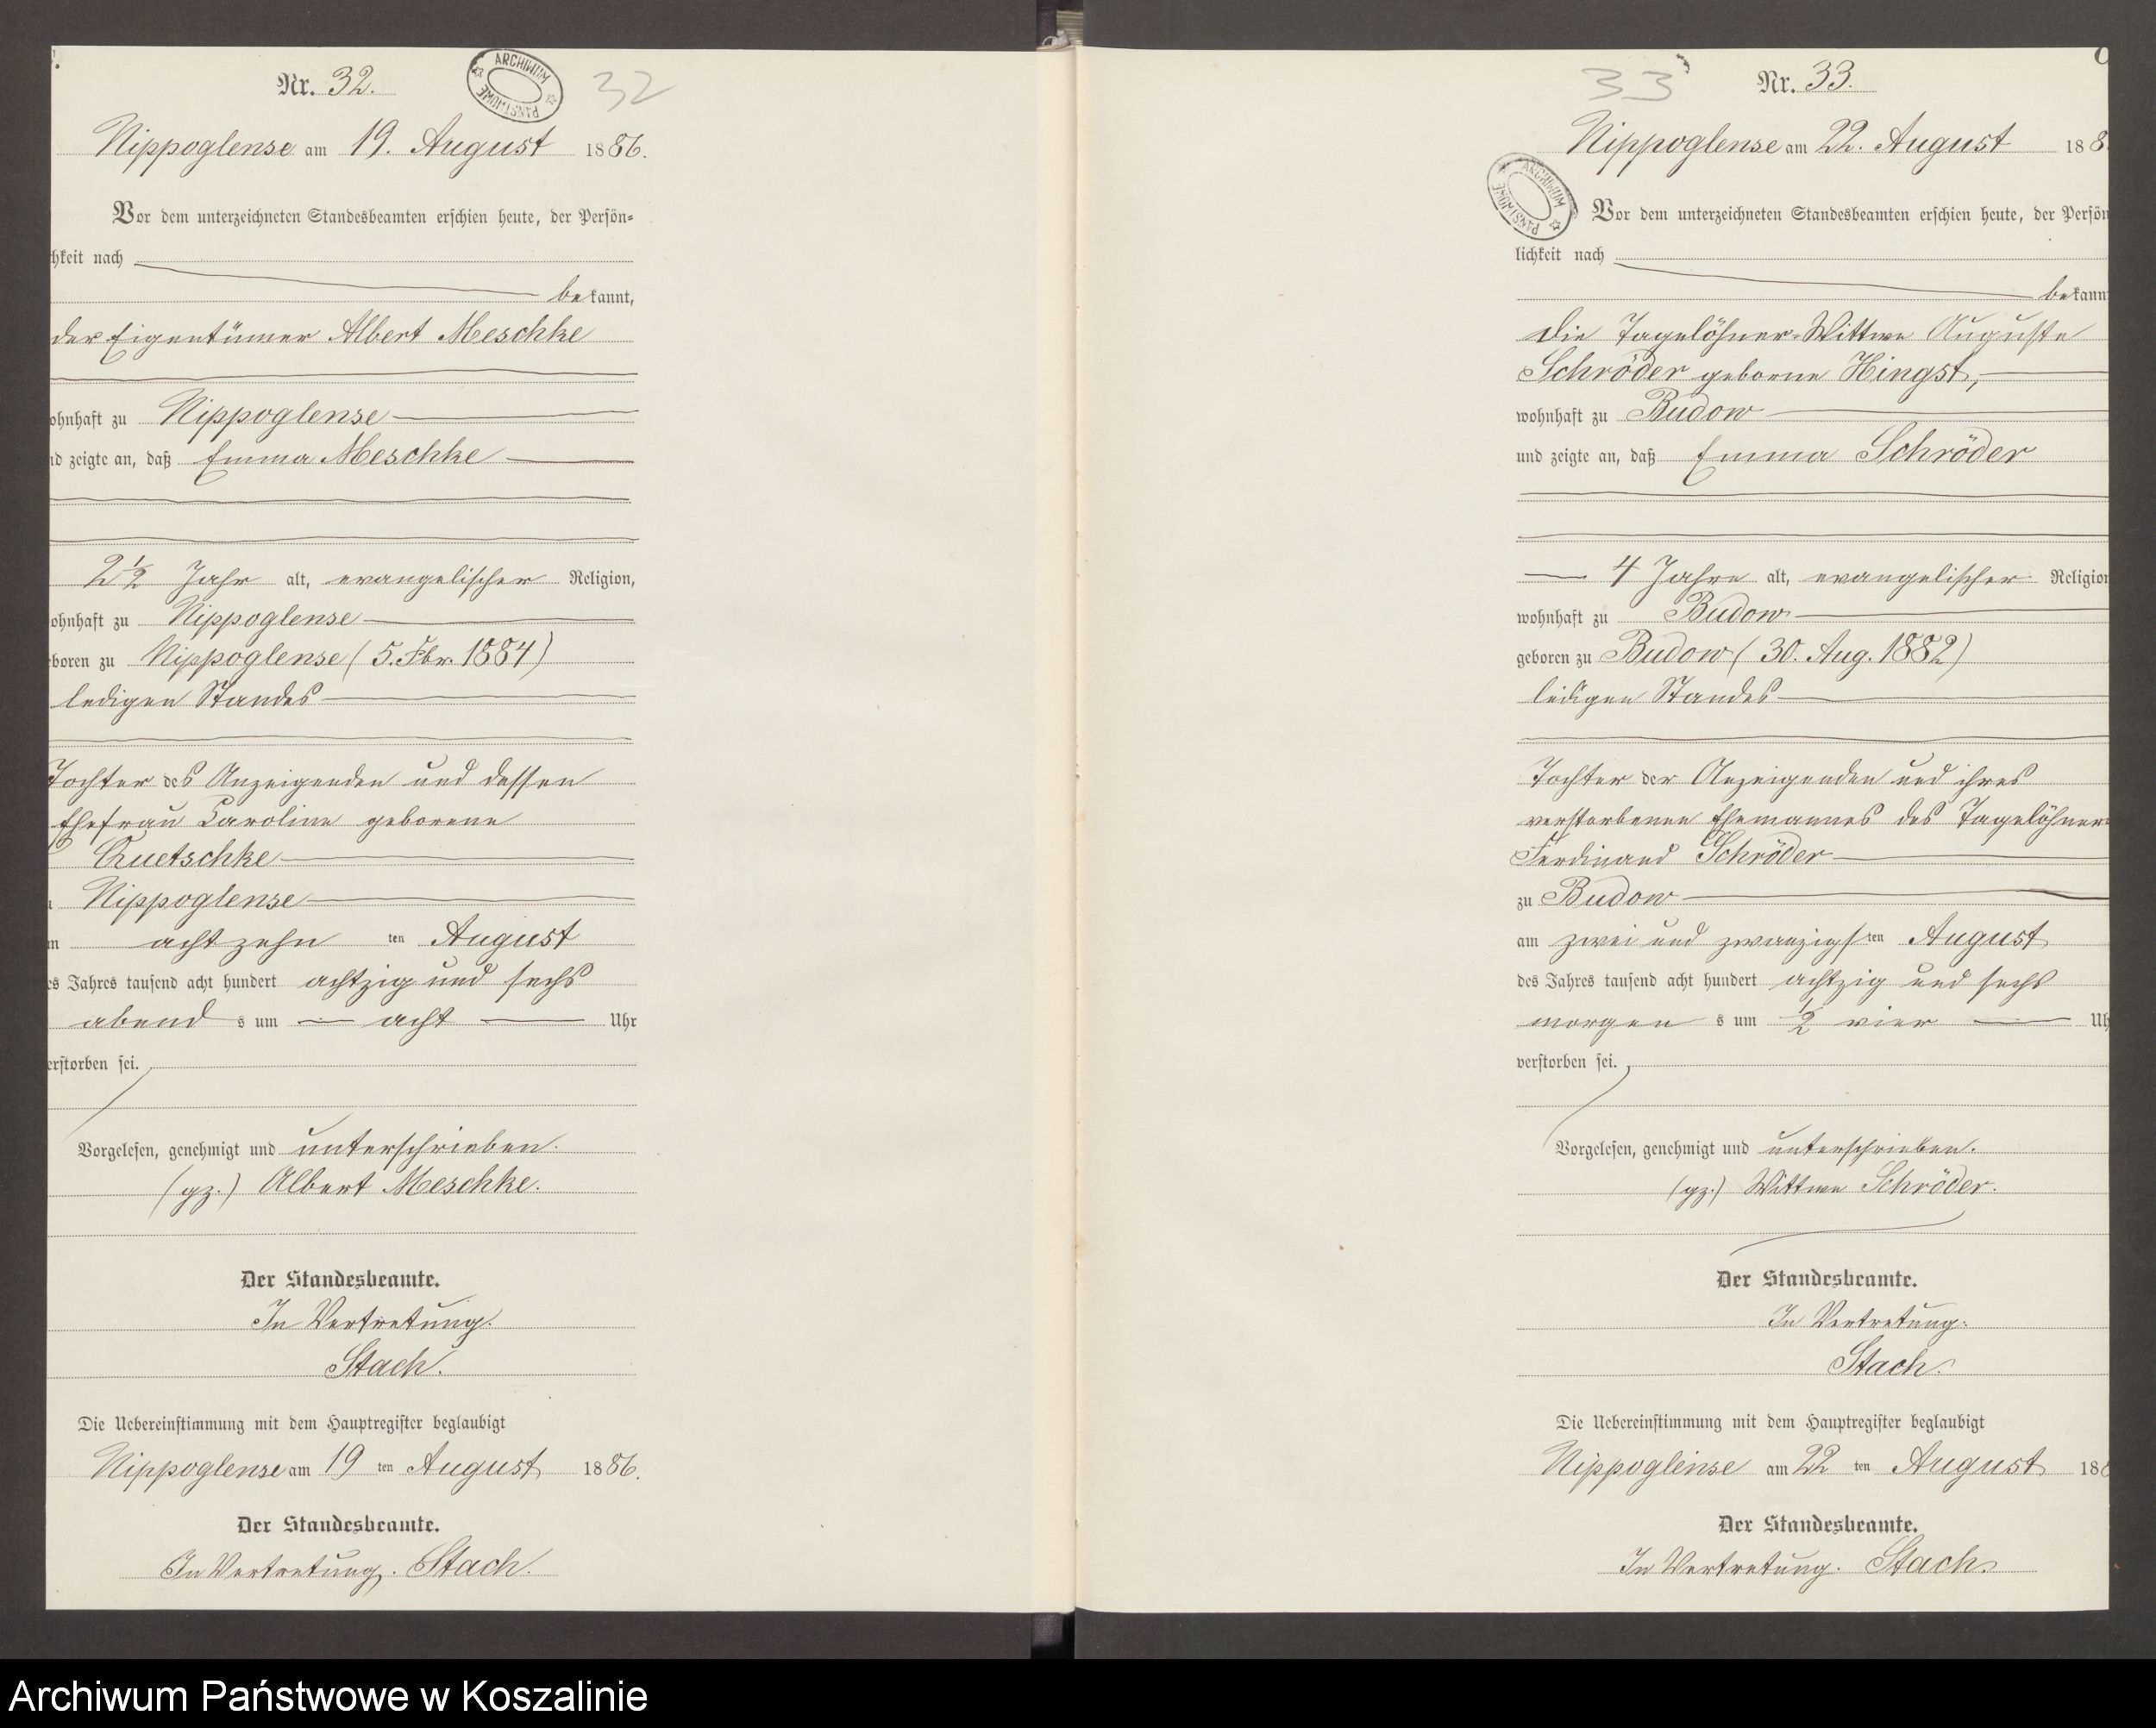 Nr. 32.
ARCHIWUM PAŃSTWOWE
32
Nippoglense am 19. August 1886.
Vor dem unterzeichneten Standesbeamten erschien heute, der Persön=
hkeit nach
bekannt,
der Eigentümer Albert Meschke
ohnhaft zu Nippoglense
nd zeigte an, daß Emma Meschke
2 1/2 Jahr alt, evangelischer Religion,
ohnhaft zu Nippoglense
boren zu Nippoglense (5. Fbr. 1884)
ledigen Standes
Tochter des Anzeigenden und dessen
Ehefrau Caroline geborene
Quetschke
Nippoglense
m achtzehn ten August
es Jahres tausend acht hundert achtzig und sechs
abend s um acht Uhr
erstorben sei.
Vorgelesen, genehmigt und unterschrieben.
(gz.) Albert Meschke.
Der Standesbeamte.
In Vertretung.
Stach.
Die Uebereinstimmung mit dem Hauptregister beglaubigt
Nippoglense am 19 ten August 1886.
Der Standesbeamte.
In Vertretung. Stach.
33
Nr. 33.
Nippoglense am 22. August 188
ARCHIWUM PAŃSTWOWE
Vor dem unterzeichneten Standesbeamten erschien heute, der Persön
lichkeit nach
bekann
die Tagelöhner-Wittwe Auguste
Schröder geborne Hingst,
wohnhaft zu Budow
und zeigte an, daß Emma Schröder
4 Jahre alt, evangelischer Religion
wohnhaft zu Budow
geboren zu Budow (30. Aug. 1882)
ledigen Standes
Tochter der Anzeigenden und ihres
verstorbenen Ehemannes des Tagelöhner
Ferdinand Schröder
zu Budow
am zwei und zwanzigsten August
des Jahres tausend acht hundert achtzig und sechs
morgen s um 1/2 vier Uh
verstorben sei.
Vorgelesen, genehmigt und unterschrieben.
(gz.) Wittwe Schröder.
Der Standesbeamte.
In Vertretung:
Stach.
Die Uebereinstimmung mit dem Hauptregister beglaubigt
Nippoglense am 22 ten August 188
Der Standesbeamte.
In Vertretung. Stach.
Archiwum Państwowe w Koszalinie